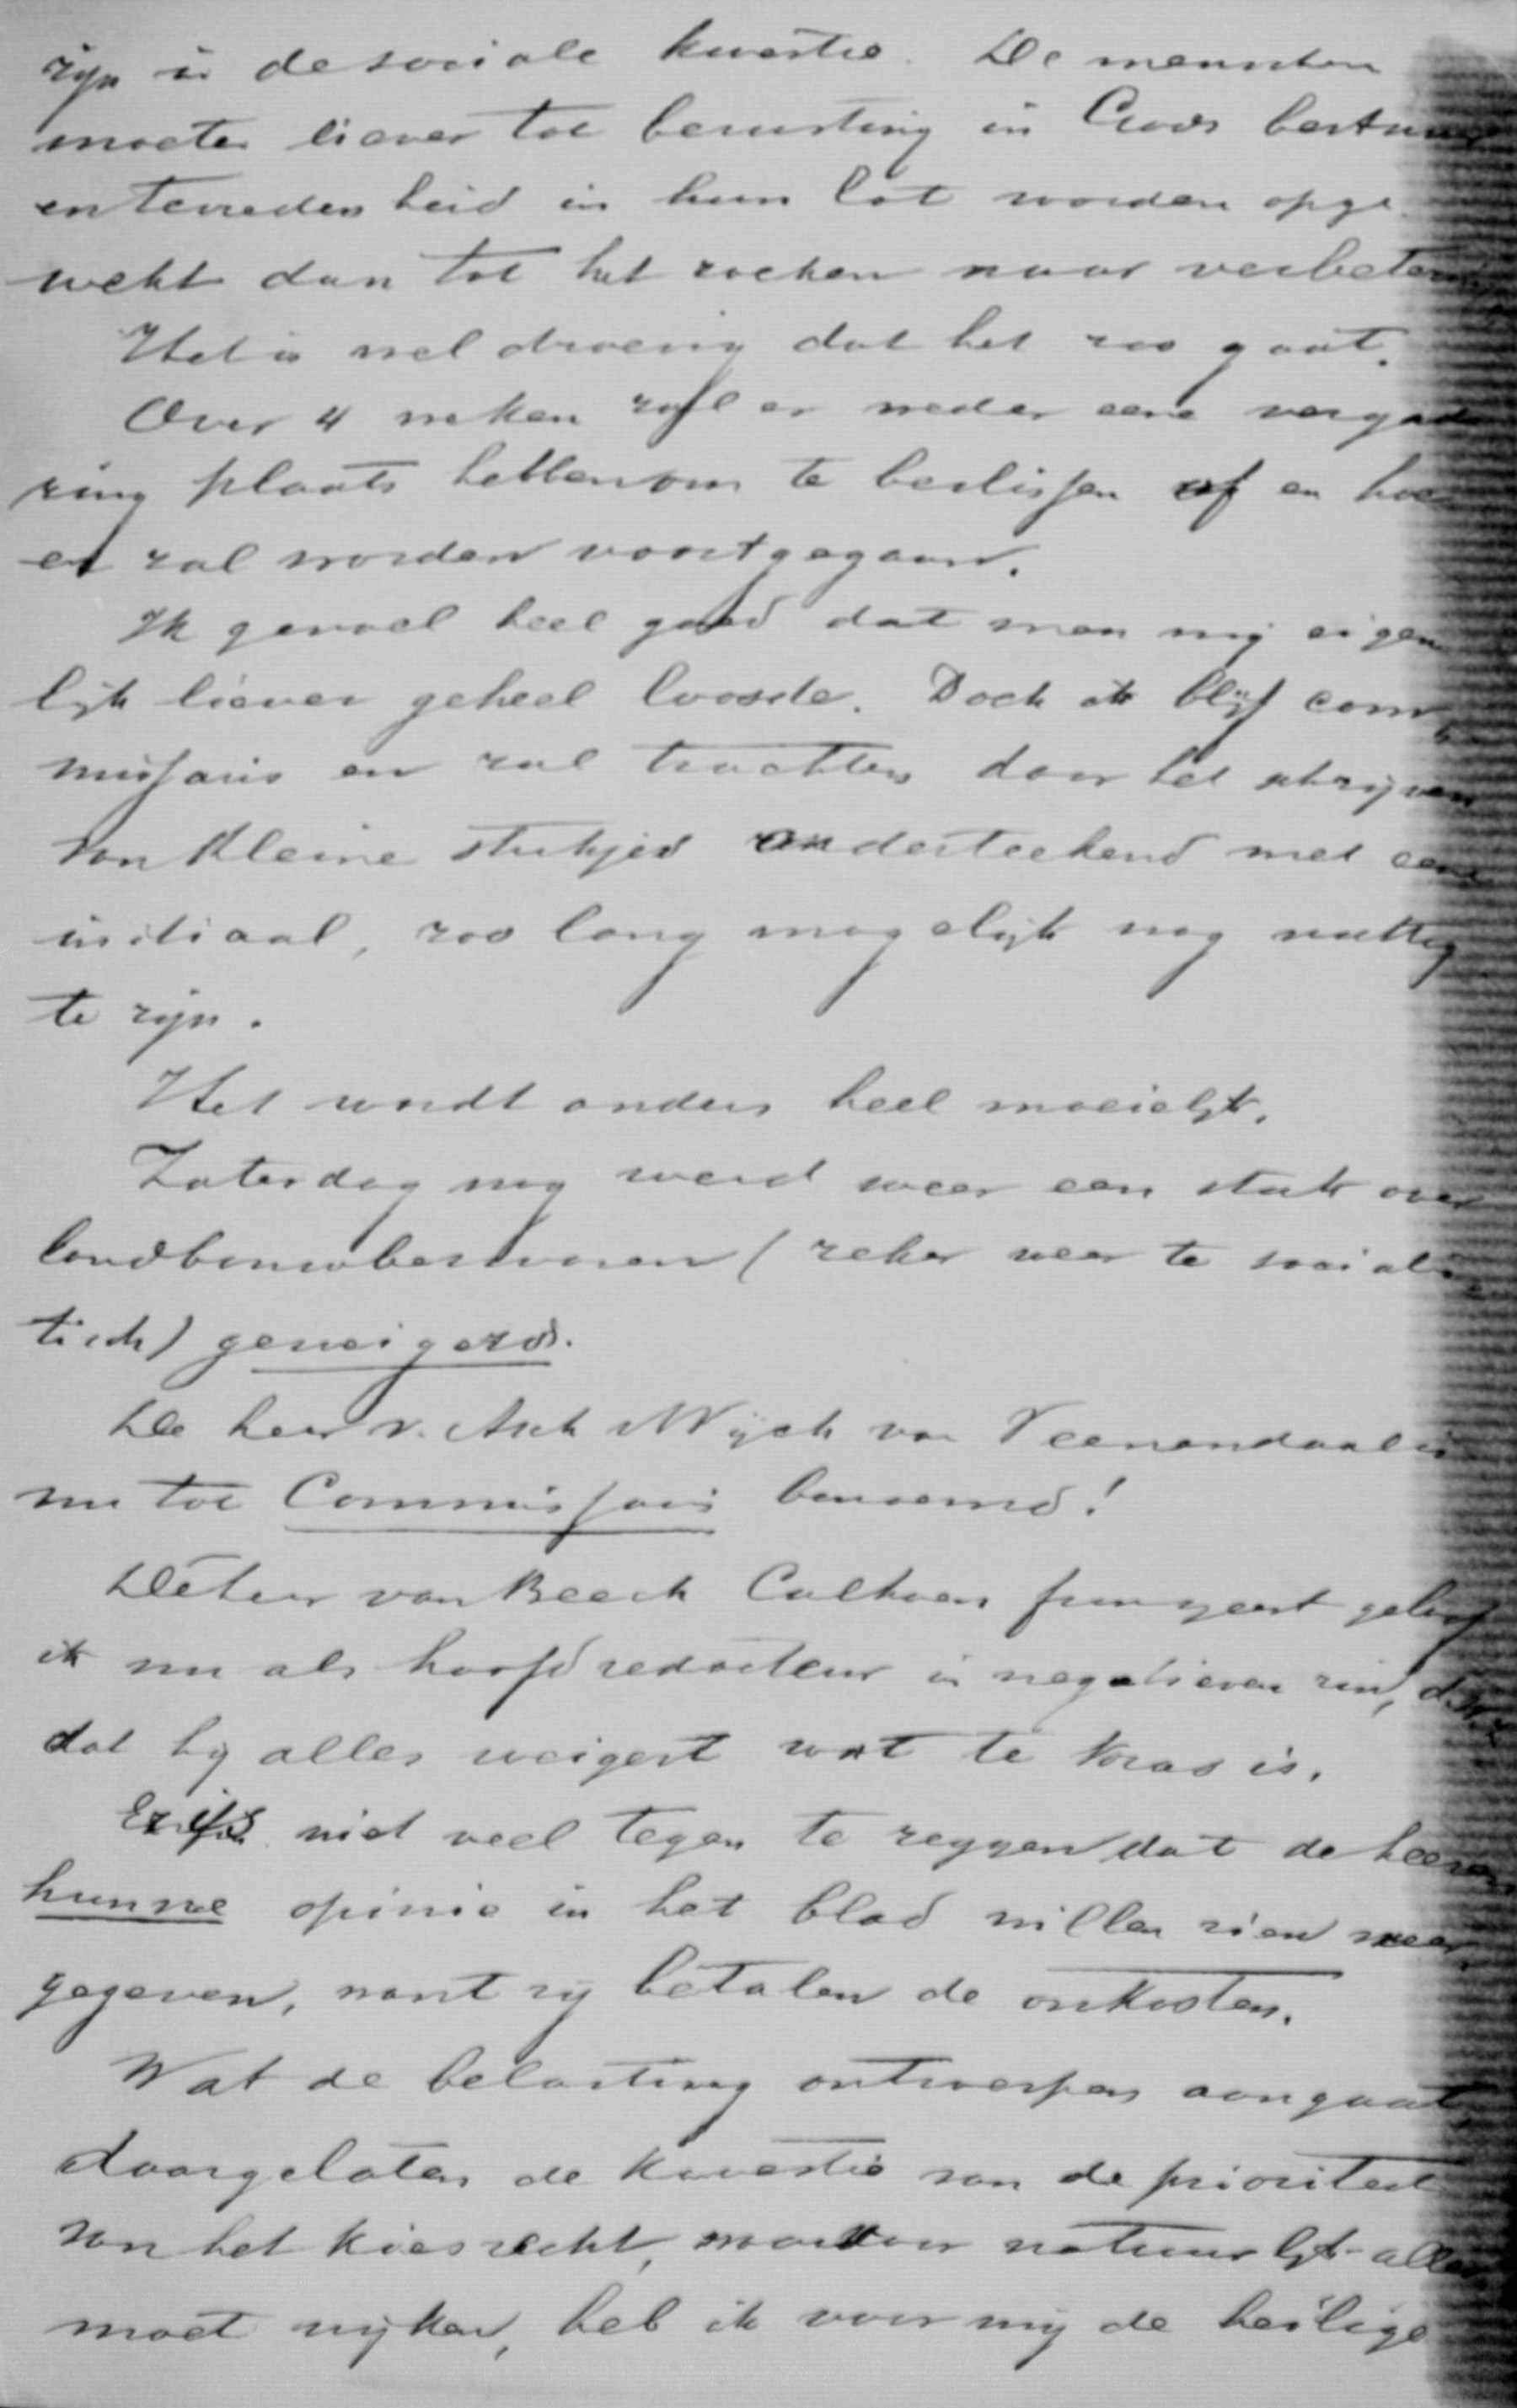 zijn in de sociale kwestie. De menschen
moeten liever tot berusting in Gods bestuur
en tevredenheid in hun lot worden opge-
wekt dan tot het zoeken naar verbetering
Het is wel droevig dat het zoo gaat.
Over 4 weken zal er weder eene vergade
ring plaats hebben om te beslissen of en hoe
er zal worden voortgegaan.
Ik gevoel heel goed dat men mij eigen
lijk liever geheel loosde. Doch ik blijf com
missaris en zal trachten door het schrijven
van kleine stukjes onderteekend met eene
initiaal, zoo lang mogelijk nog nuttig
te zijn.
Het wordt anders heel moeielijk.
Zaterdag nog werd weer een stuk over
landbouwbezwaren (zeker weer te socialis
tisch) geweigerd.
De heer v. Asch v Wijck van Veenendaal is
nu tot Commissaris benoemd!
De heer van Beeck Calkoen fungeert geloof
ik nu als hoofdredacteur in negatieven zin, door
dat hij alles weigert wat te kras is.
Er is niet veel tegen te zeggen dat de heeren
hunne opinie in het blad willen zien weer
gegeven, want zij betalen de onkosten.
Wat de belasting ontwerpen aangaat,
daargelaten de kwestie van de prioriteit
van het kiesrecht, waarvoor natuurlijk alles
moet wijken, heb ik voor mij de heilige